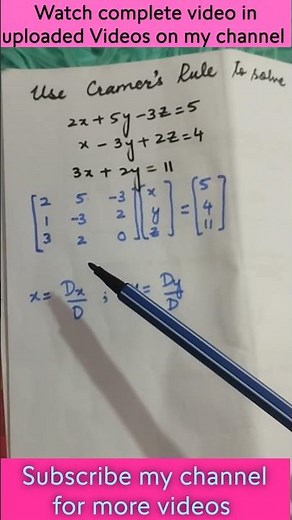 Watch complete video in
uploaded Videos on my channel
Use Cramer's Rule to solve
2x + 5y - 3z = 5
x - 3y + 2z = 4
3x + 2y = 11
[2 5 -3] [x] = [5]
[1 -3 2] [y] [4]
[3 2 0] [z] [11]
x = Dx/D ; = Dy/D
Subscribe my channel
for more videos